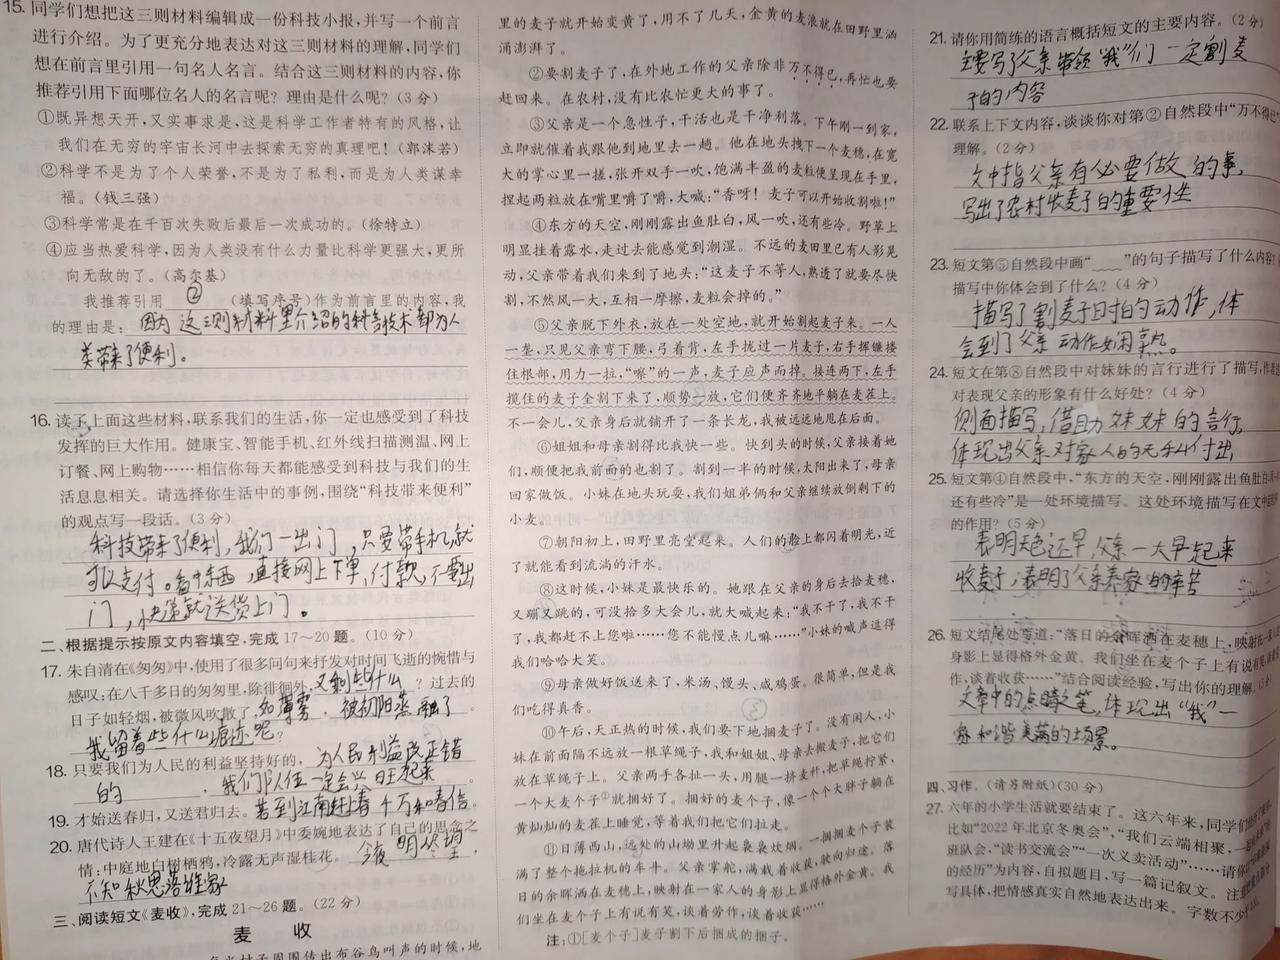 15. 同学们想把这三则材料编辑成一份科技小报，并写一个前言
进行介绍。为了更充分地表达对这三则材料的理解，同学们
想在前言里引用一句名人名言。结合这三则材料的内容，你
推荐引用下面哪位名人的名言呢？理由是什么呢？(3 分)
①既异想天开，又实事求是，这是科学工作者特有的风格，让
我们在无穷的宇宙长河中去探索无穷的真理吧！(郭沫若)
②科学不是为了个人荣誉，不是为了私利，而是为人类谋幸
福。(钱三强)
③科学常是在千百次失败后最后一次成功的。(徐特立)
④应当热爱科学，因为人类没有什么力量比科学更强大，更所
向无敌的了。(高尔基)
我推荐引用 ② (填写序号)作为前言里的内容，我
的理由是：因为这三则材料里介绍的科学技术都为人
类带来了便利。
16. 读了上面这些材料，联系我们的生活，你一定也感受到了科技
发挥的巨大作用。健康宝、智能手机、红外线扫描测温、网上
订餐、网上购物……相信你每天都能感受到科技与我们的生
活息息相关。请选择你生活中的事例，围绕“科技带来便利”
的观点写一段话。(3 分)
科技带来了便利，我们一出门，只要带手机就
可以支付。看中东西，直接网上下单，付款，不要出
门，快递就送货上门。
二、根据提示按原文内容填空，完成 17～20 题。(10 分)
17. 朱自清在《匆匆》中，使用了很多问句来抒发对时间飞逝的惋惜与
感叹：在八千多日的匆匆里，除徘徊外，又剩些什么？过去的
日子如轻烟，被微风吹散了，如薄雾，被初阳蒸融了
我留着些什么痕迹呢？
18. 只要我们为人民的利益坚持好的，为人民利益改正错
的，我们队伍一定会兴旺起来。
19. 才始送春归，又送君归去。若到江南赶上春 千万和春住。
20. 唐代诗人王建在《十五夜望月》中委婉地表达了自己的思念之
情：中庭地白树栖鸦，冷露无声湿桂花。今夜 明 望，
不知秋思落谁家
三、阅读短文《麦收》，完成 21～26 题。(22 分)
麦 收
当村子周围传出布谷鸟叫声的时候，地
里的麦子就开始变黄了，用不了几天，金黄的麦浪就在田野里汹
涌澎湃了。
②要割麦子了，在外地工作的父亲除非万不得已，再忙也要
赶回来。在农村，没有比农忙更大的事了。
③父亲是一个急性子，干活也是干净利落。下午刚一到家，
立即就催着我跟他到地里去一趟。他在地头拽下一个麦穗，在宽
大的掌心里一搓，张开双手一吹，饱满丰盈的麦粒便呈现在手里，
捏起两粒放在嘴里嚼了嚼，大喊：“香呀！麦子可以开始收割啦！”
④东方的天空，刚刚露出鱼肚白，风一吹，还有些冷。野草上
明显挂着露水，走过去能感觉到潮湿。不远的麦田里已有人影晃
动，父亲带着我们来到了地头：“这麦子不等人，熟透了就要尽快
割，不然风一大，互相一摩擦，麦粒会掉的。”
⑤父亲脱下外衣，放在一处空地，就开始割起麦子来。一人
一垄，只见父亲弯下腰，弓着背，左手拢过一片麦子，右手挥镰搂
住根部，用力一拉，“嚓”的一声，麦子应声而掉。接连两下，左手
揽住的麦子全割下来了，顺势一放，它们便齐齐地平躺在麦茬上。
不一会儿，父亲身后就铺开了一条长龙，我被远远地甩在后面。
⑥姐姐和母亲割得比我快一些。快到头的时候，父亲接着她
们，顺便把我前面的也割了。割到一半的时候，太阳出来了，母亲
回家做饭。小妹在地头玩耍，我们姐弟俩和父亲继续放倒剩下的
小麦。
⑦朝阳初上，田野里亮堂起来。人们的脸上都闪着明光，近
了就能看到流淌的汗水。
⑧这时候，小妹是最快乐的。她跟在父亲的身后去拾麦穗，
又蹦又跳的，可没拾多大会儿，就大喊起来：“我不干了，我不干
了，我都赶不上您啦……您不能慢点儿嘛……”小妹的喊声逗得
我们哈哈大笑。
⑨母亲做好饭送来了，米汤、馒头、咸鸡蛋。很简单，但是我
们吃得真香。
⑩午后，天正热的时候，我们要下地捆麦子了。没有闲人，小
妹在前面隔不远放一根草绳子，我和姐姐、母亲去搬麦子，把它们
放在草绳子上。父亲两手各扯一头，用腿一挤麦秆，把草绳拧紧，
一个大麦个子①就捆好了。捆好的麦个子，像一个个大胖子躺在
黄灿灿的麦茬上睡觉，等着我们把它们拉走。
⑪日薄西山，远处的山坳里升起袅袅炊烟。一捆捆麦个子装
满了整个拖拉机的车斗。父亲掌舵，满载着收获，驶向归途。落
日的余晖洒在麦穗上，映射在一家人的身影上显得格外金黄。我
们坐在麦个子上有说有笑，谈着劳作，谈着收获……
注：①[麦个子]麦子割下后捆成的捆子。
21. 请你用简练的语言概括短文的主要内容。(2 分)
主要写了父亲带领“我”们一定割麦
子的内容
22. 联系上下文内容，谈谈你对第②自然段中“万不得已”
理解。(2 分)
文中指父亲有必要做的事，
写出了农村收麦子的重要性
23. 短文第⑤自然段中画“﹏﹏”的句子描写了什么内容？
描写中你体会到了什么？(4 分)
描写了割麦子时的动作，体
会到了父亲动作娴熟。
24. 短文在第⑧自然段中对妹妹的言行进行了描写，作者这
对表现父亲的形象有什么好处？(4 分)
侧面描写，借助妹妹的言行，
体现出父亲对家人的无私付出
25. 短文第④自然段中，“东方的天空，刚刚露出鱼肚白，
还有些冷”是一处环境描写。这处环境描写在文中
的作用？(5 分)
表明天色还早，父亲一大早起来
收麦子，表明了父亲养家的辛苦
26. 短文结尾处写道：“落日的余晖洒在麦穗上，映射在一家
身影上显得格外金黄。我们坐在麦个子上有说有笑，
作，谈着收获……”结合阅读经验，写出你的理解。
文章中的点睛之笔，体现出“我”一
家和谐美满的场景。
四、习作。(请另附纸)(30 分)
27. 六年的小学生活就要结束了。这六年来，同学们
比如“2022 年北京冬奥会”，“我们云端相聚，
班队会，“读书交流会”“一次义卖活动”……请你
的经历”为内容，自拟题目，写一篇记叙文。注
写具体，把情感真实自然地表达出来。字数不少